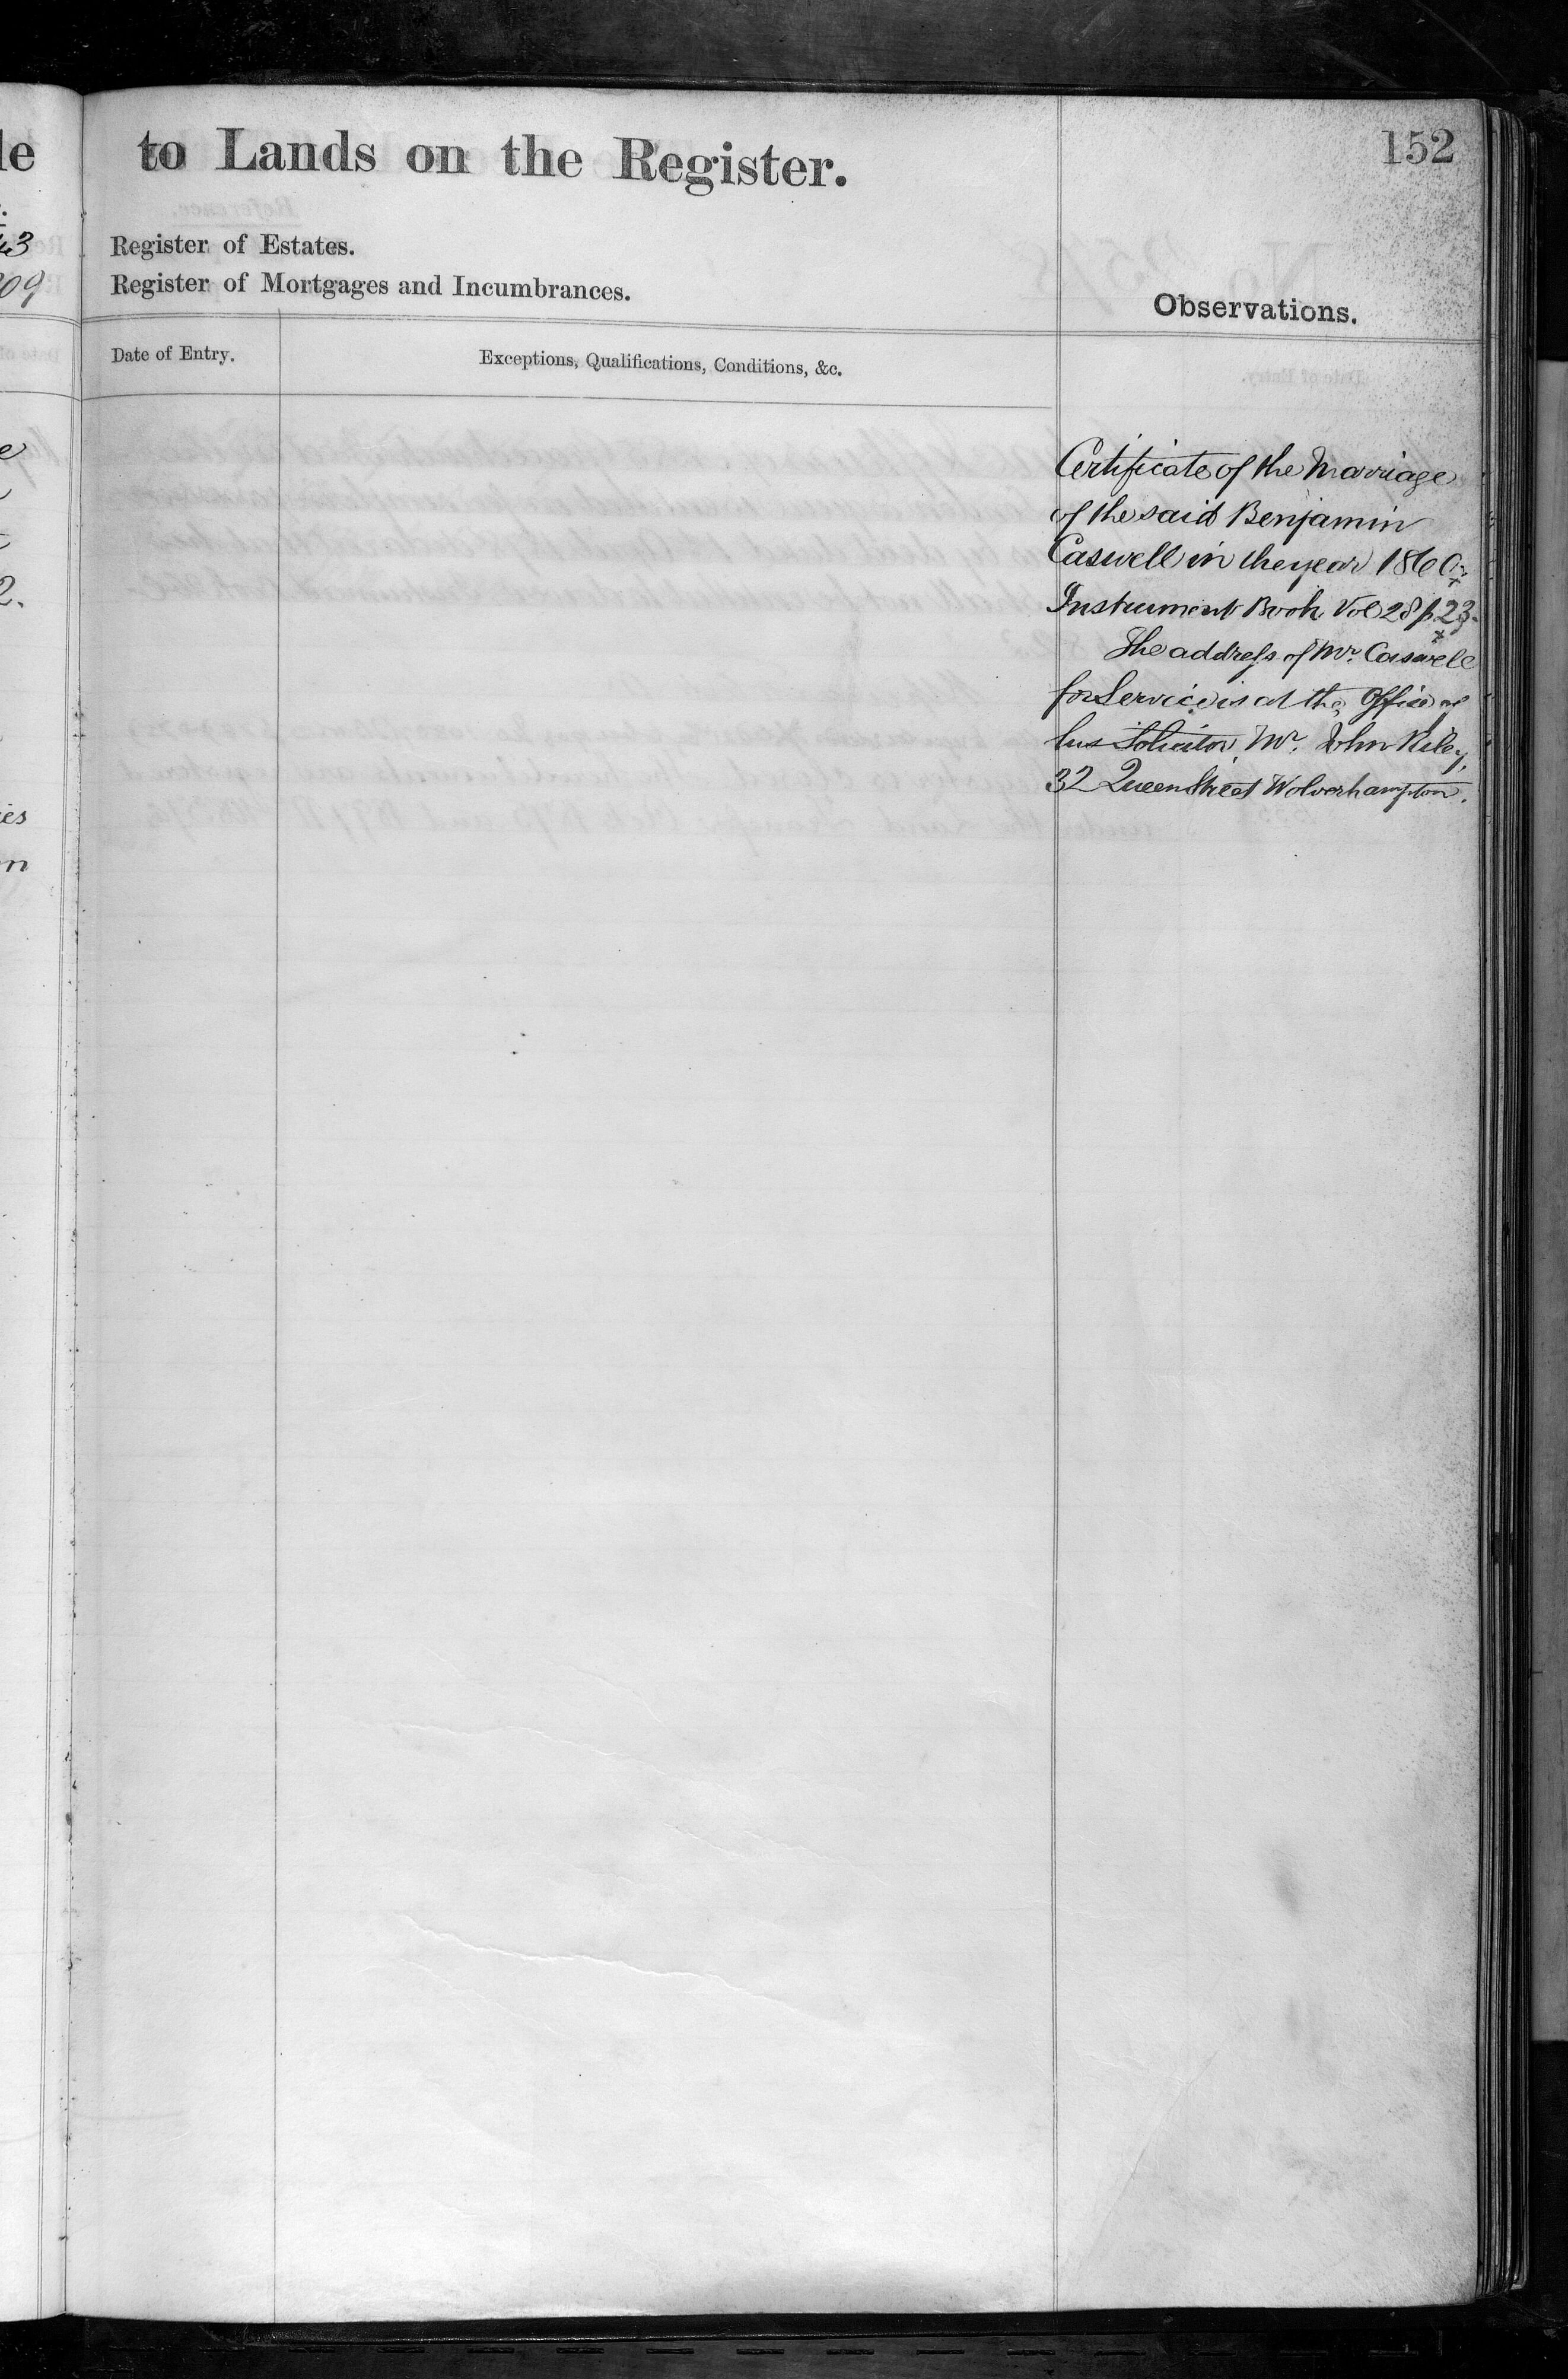 le
to Lands on the Register.
152
43
Register of Estates.
209
Register of Mortgages and Incumbrances.
Observations.
Date of Entry.
Exceptions, Qualifications, Conditions, &c.
Certificate of the Marriage
of the said Benjamin
Caswell in the year 1860.
Instrument Book Vol 28 p. 23.
The address of Mr. Caswell
for Service is at the Office of
his Solicitor, Mr. John Riley,
32 Queen Street Wolverhampton.
2.
ies
m